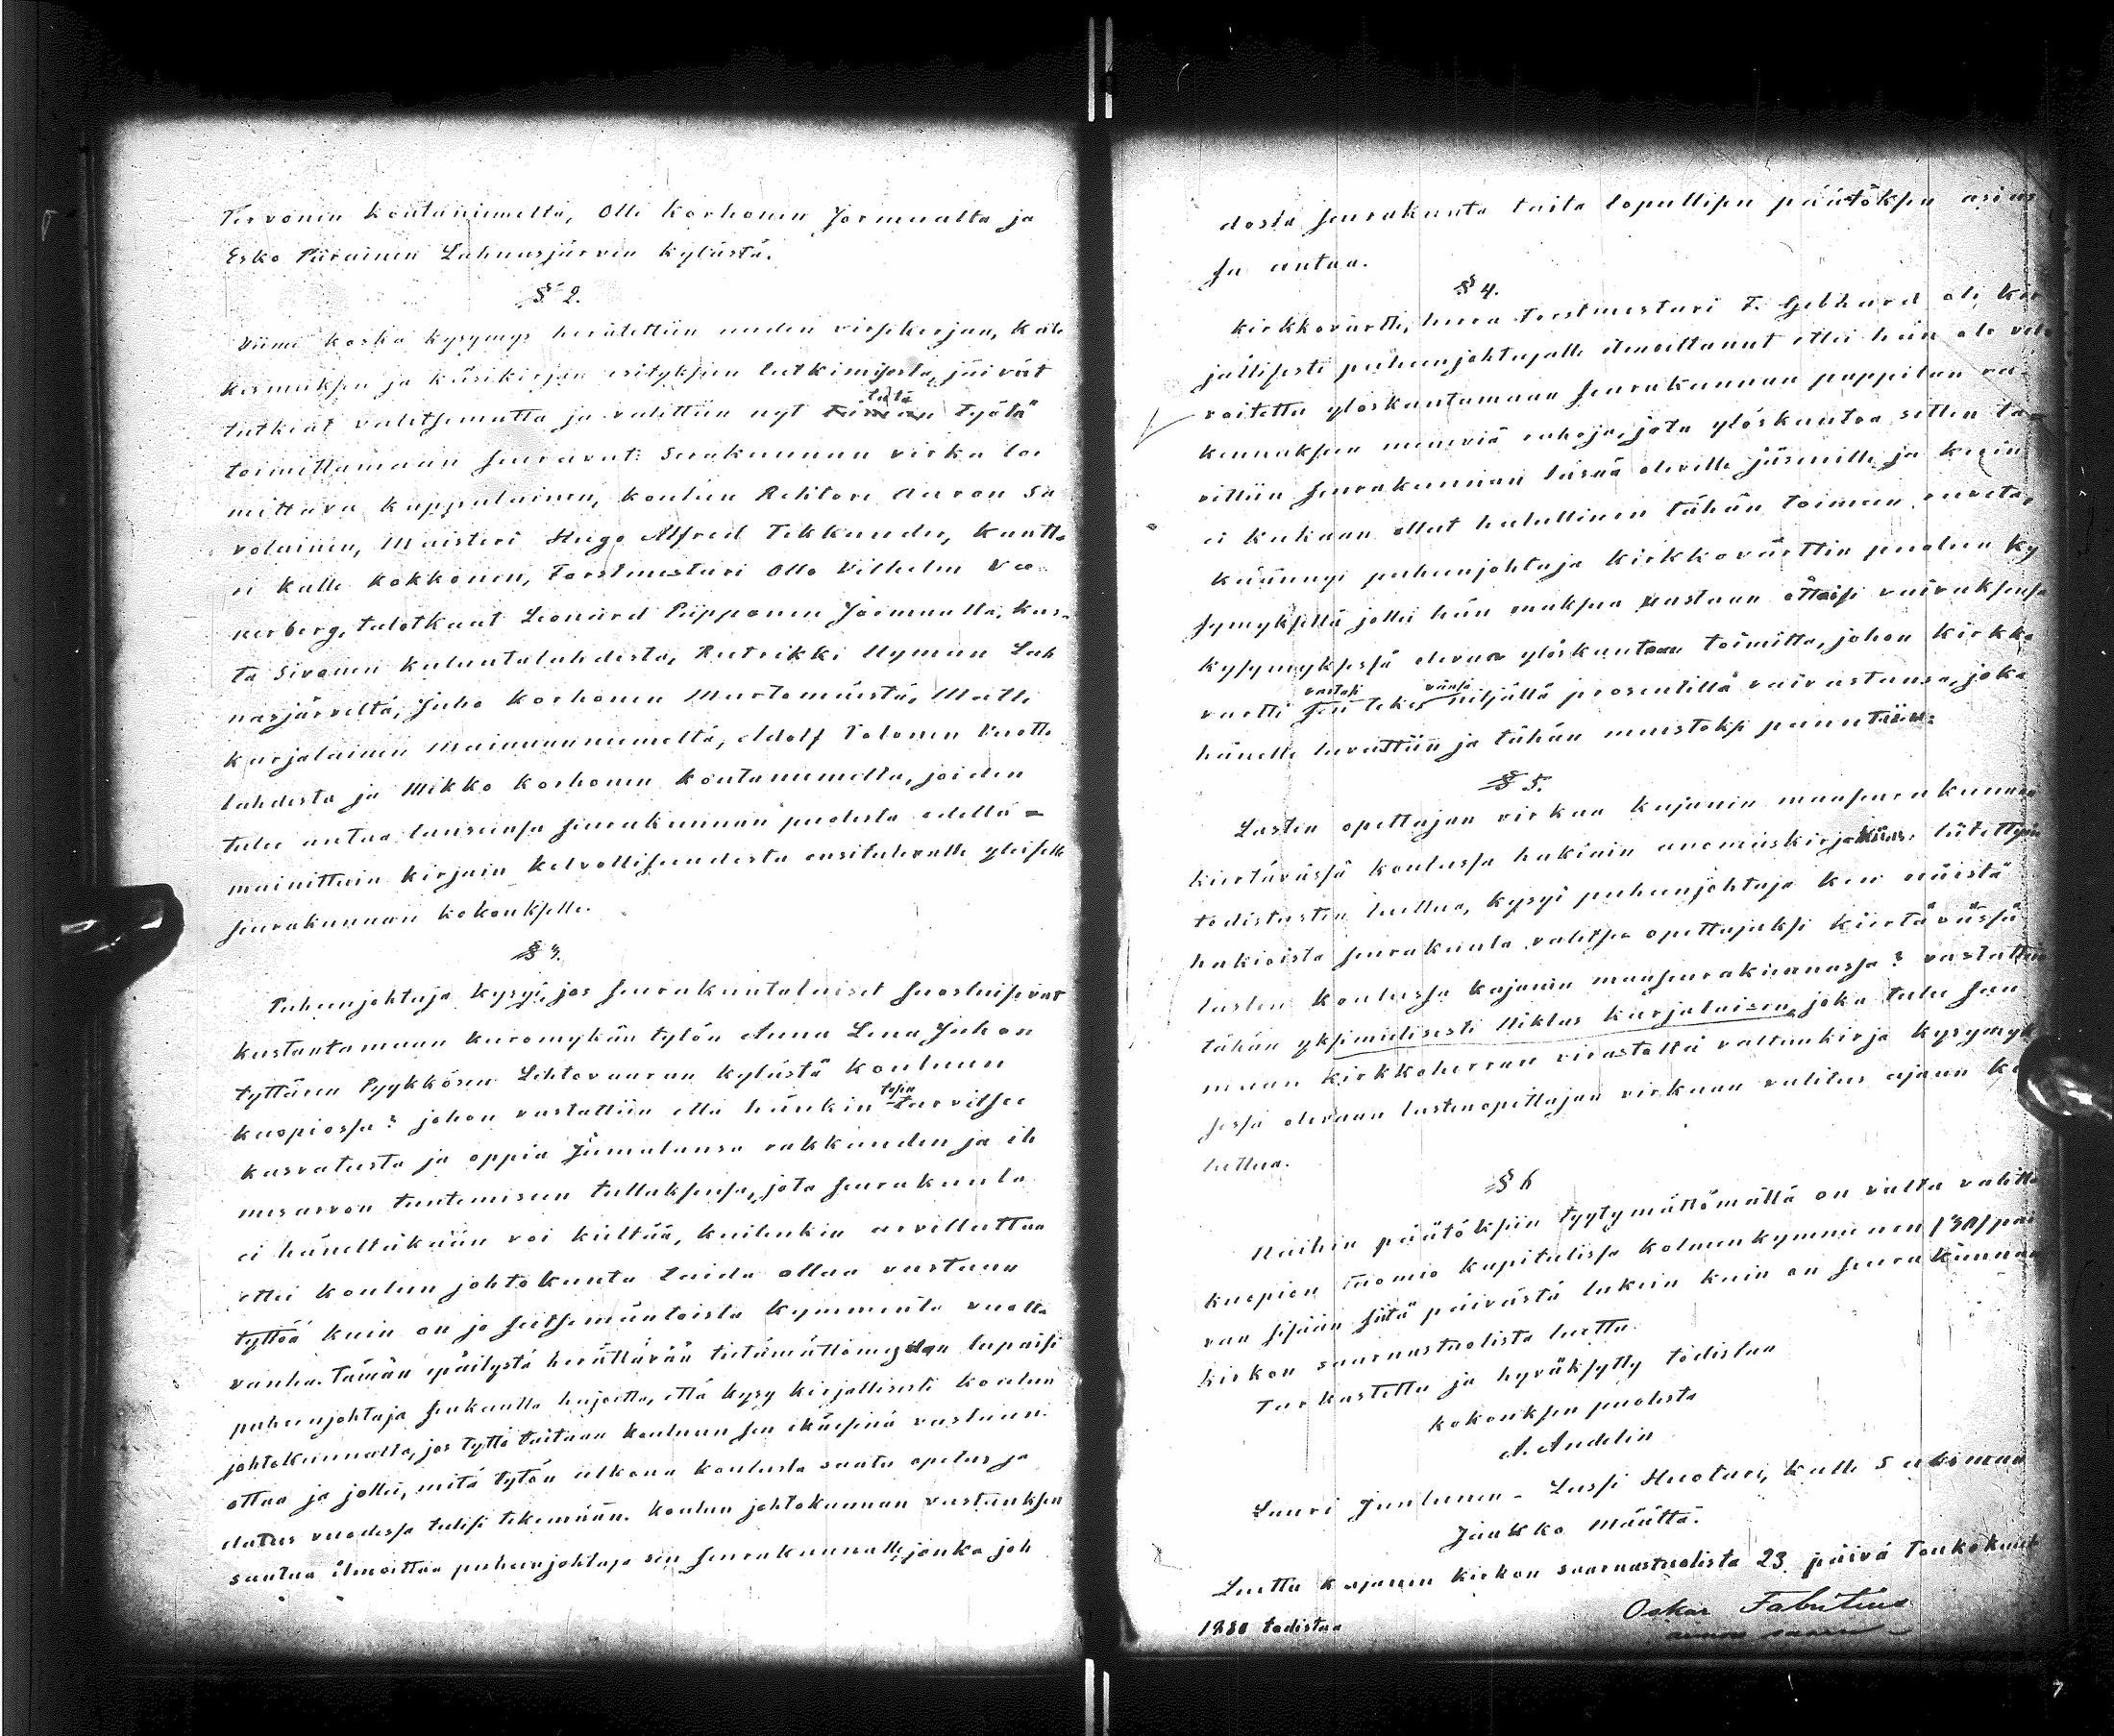 Tervonen Koutaniemeltä, Olli Korhonen Jormualta ja
Esko Piirainen Lahnasjärven kylästä.
§ 2.
Viime koska kysymys herätettiin uuden virsikirjan, kate
kismuksen ja käsikirjan esityksien tutkimisesta, jäivät
tutkiat valitsematta ja valittiin nyt tätä työtä
toimittamaan seuravat: Seurakunnan virka toi
mittava kappalainen, koulun Rehtori Aaron Sa
volainen, Maisteri Hugo Alfred Tekkander, Kantto
ri Kalle Kokkonen, Forstmestari Otto Vilhelm Voo
nerberg, talolkaat Leonard Piipponen Jormualta, Kus-
ta Sivonen Kuluntalahdesta, Retrikki Nyman Lah
nasjärveltä, Juho Korhonen Murtomäistä, Matti
Karjalainen Mainuanniemeltä, Adolf Tolonen Vuotto
lahdesta ja Mikko Korhonen Koutaniemeltä, joiden
tulee antaa lausunsa seurakunnan puolesta edellä =
mainittuin kirjain kelvollisuudesta ensitulevalle yleiselle
seurakunnan kokoukselle.
§ 3.
Puheenjohtaja kysyi, jos seurakuntalaiset suostuisivat
kustantamaan kuuromykän tytön Anna Leena Juhon
tyttären Pyykkösen Lehtovaaran kylästä kouluun
Kuopiossa? johon vastattiin että hänkin tosin tarvitsee
kasvatusta ja oppia Jumalansa rakkauden ja ih
misarvon tuntemiseen tullaksensa, jota seurakunta
ei häneltäkään voi kieltää, kuitenkin arvelluttaa
ettei koulun johtokunta taida ottaa vastaan
tyttöä kuin on jo seitsemäntoista kymmentä vuotta
vanha. Tämän epäilystä herättävän tietämättömyyden lupaisi
puheenjohtaja seukunta hajoitta, että kysy kirjallisesti koulun
johtokunnalta, jos tyttö taitaan kouluun sen ikäisenä vastaan
ottaa ja jollei, mitä tytön ulkona koulusta saatu opetus ja
elatus vuodessa tulisi tekemään. Koulun johtokunnan vastauksen
saatua ilmoittaa puheenjohtaja sen seurakunnalle, jonka joh
dosta seurakunta taita lopullisen päätöksen asias
sa antaa.
§ 4.
Kirkkovärtti, herra Forstmestari F. Gebhard oli kir
jallisesti puheenjohtajalle ilmoittanut ettei hän ole vel
voitettu yloskantamaan seurakunnan pappilan ra-
kennukseen meneviä rahoja, jota yloskantoa sitten ta=
rittiin seurakunnan läsnä oleville jäsenille ja kuin
ei kukaan ollut halullinen tähän toimeen ruveta,
käännyi puheenjohtaja kirkkovärttin puoleen ky
symyksellä jollei hän maksua vastaan ottaisi vaivaksensa
kysymyksessä olevan yloskantoa toimitta, johon kirkko
vartti vastasi sen tekevänsä neljällä prosentilla vaivastansa, joka
hänelle luvattiin ja tähän muistoksi pannatiin.
§ 5.
Lasten opettajan virkaa Kajanin maaseurakunnan
kiertävässä koulussa hakiain anomuskirjat liitettyin
todistusten luettua, kysyi puheenjohtaja ken näistä
hakioista seurakunta valitsee opettajaksi kiertävässä
lasten koulussa Kajanin maaseurakunnassa? vastattiin
tähän yksimielisesti Niklas Karjalaisen, joka tulee saa
maan kirkkoherran virastolta valtuuskirja kysymyk
sessä olevaan lastenopettajan virkaan valitus ajaan ku
luttua.
§ 6
Näihin päätöksiin tyytymättömällä on valta valitta
Kuopion Tuomio kapitulissa kolmenkymmenen (30) päi
vän sisään siitä päivästä lukein kuin on seurakunnan
kirkon saarnastuolista luettu.
Tarkastettu ja hyväksytty todistaa
kokouksen puolesta
A. Andelin
Lauri Juntunen - Lassi Huotari, Kalle Suhonen
Jaakko Määttä.
Luettu Kajanin kirkon saarnastuolista 23 päivä Toukokuut
1880 todistaa
Oskar Fabritius